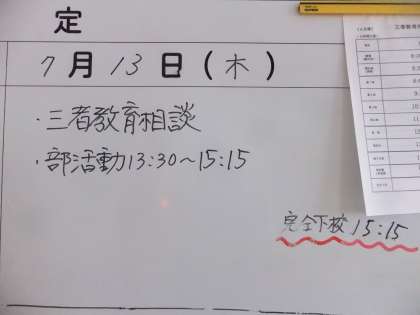 定
7月13日(木)
・三者教育相談
・部活動13:30〜15:15
完全下校 15:15